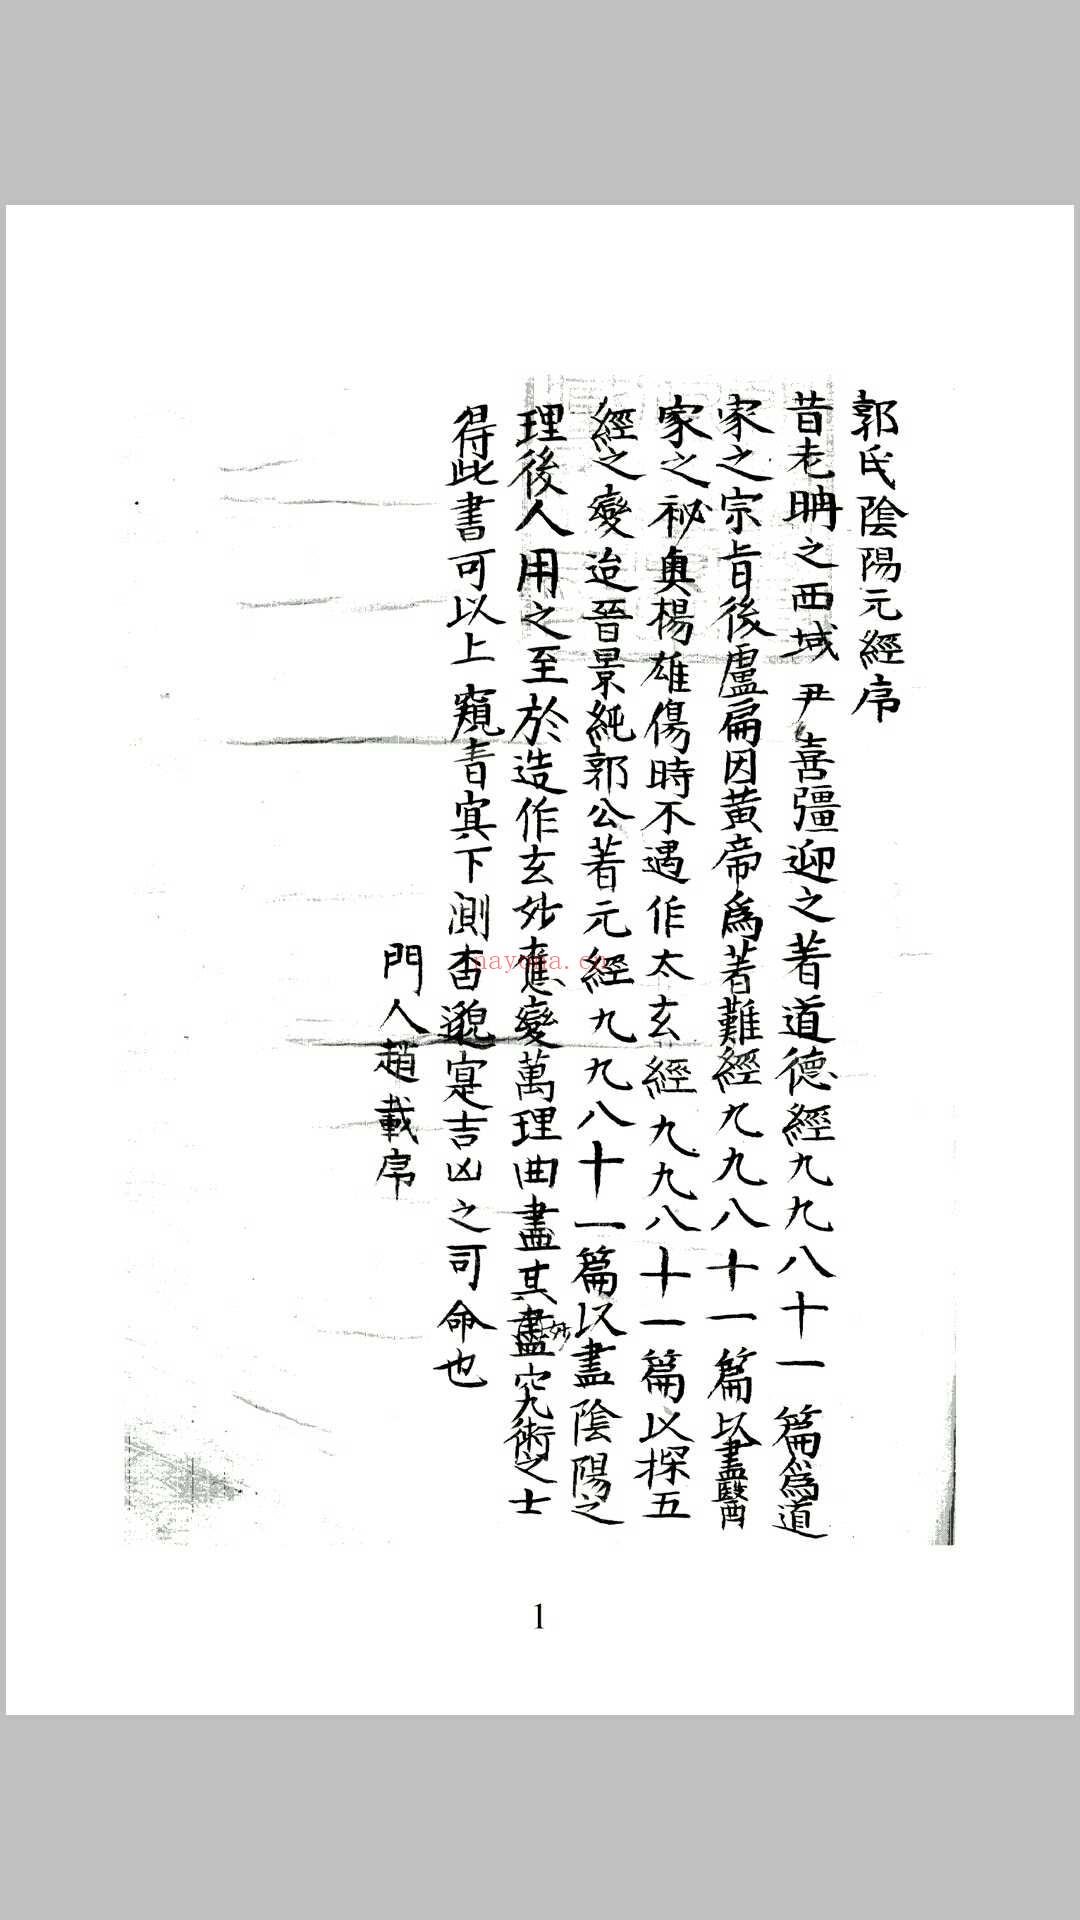 郭氏陰陽元經序
昔老聃之西域尹喜彊迎之著道德經九九八十一篇為道
家之宗旨後盧扁因黃帝為著難經九九八十一篇以盡醫
家之祕奧楊雄傷時不遇作太玄經九九八十一篇以探五
經之變迨晉景純郭公著元經九九八十一篇以盡陰陽之
理後人用之至於造作玄妙應變萬理曲盡其盡妙究術之士
得此書可以上窺青冥下測杳邈寔吉凶之司命也
門人趙載序
nayona.cn
1